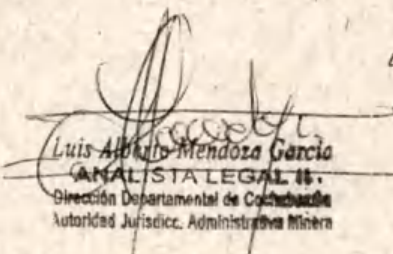 Luis Alberto Mendoza Garcia
ANALISTA LEGAL II.
Dirección Departamental de Cochabamba
Autoridad Jurisdicc. Administrativa Minera